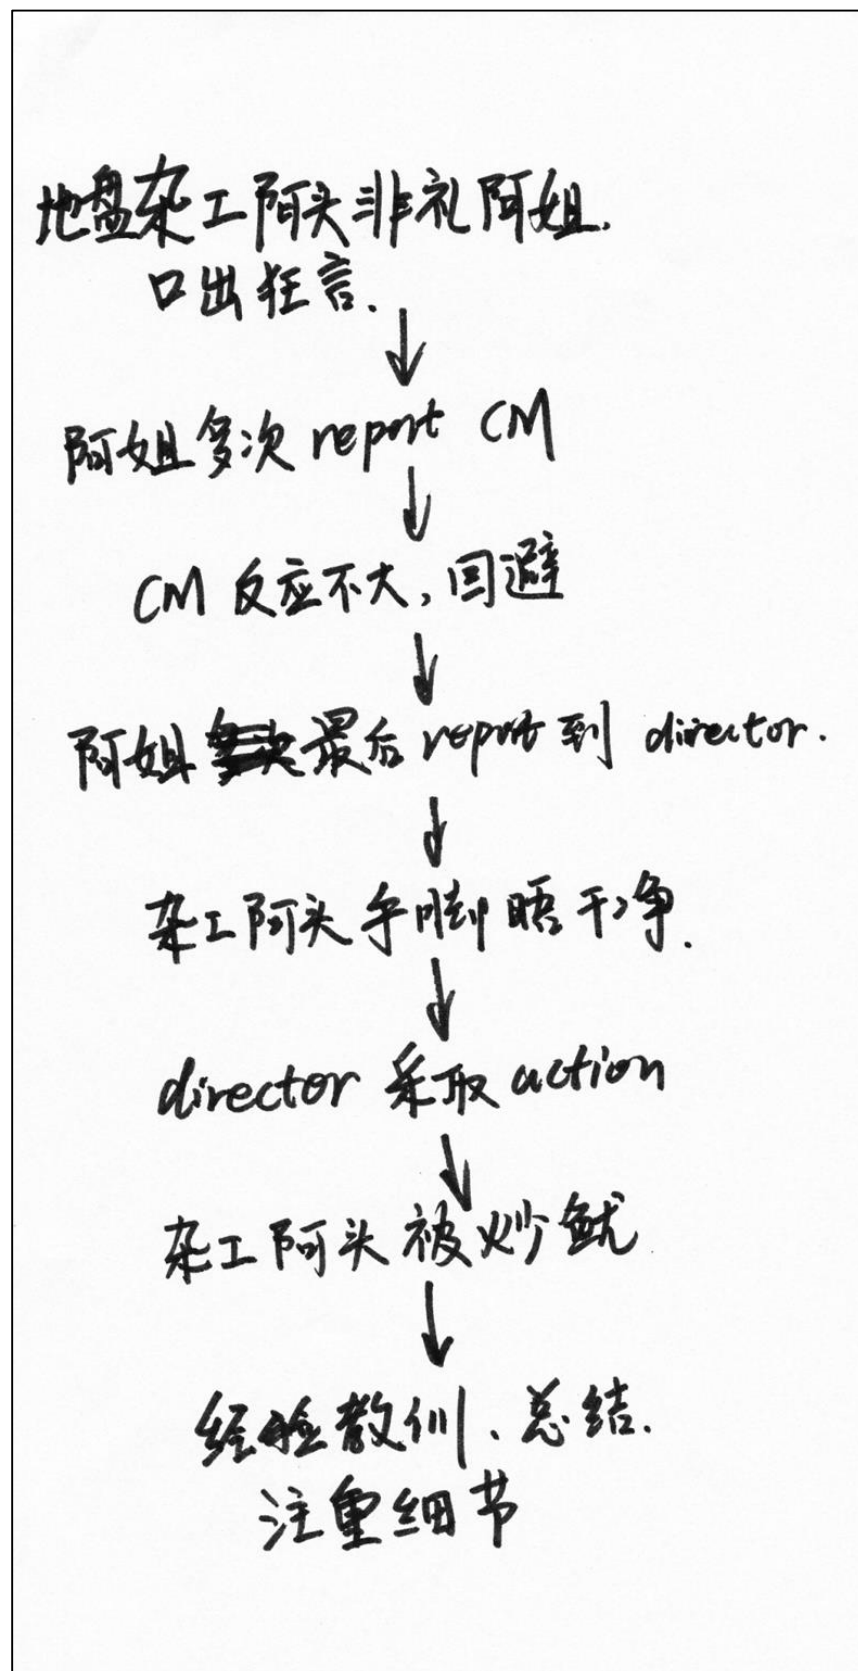 地盘杂工阿头非礼阿姐.
口出狂言.
↓
阿姐多次 report CM
↓
CM 反应不大,回避
↓
阿姐最后 report 到 director.
↓
杂工阿头手脚唔干净.
↓
director 采取 action
↓
杂工阿头被炒鱿
↓
经验教训、总结.
注重细节